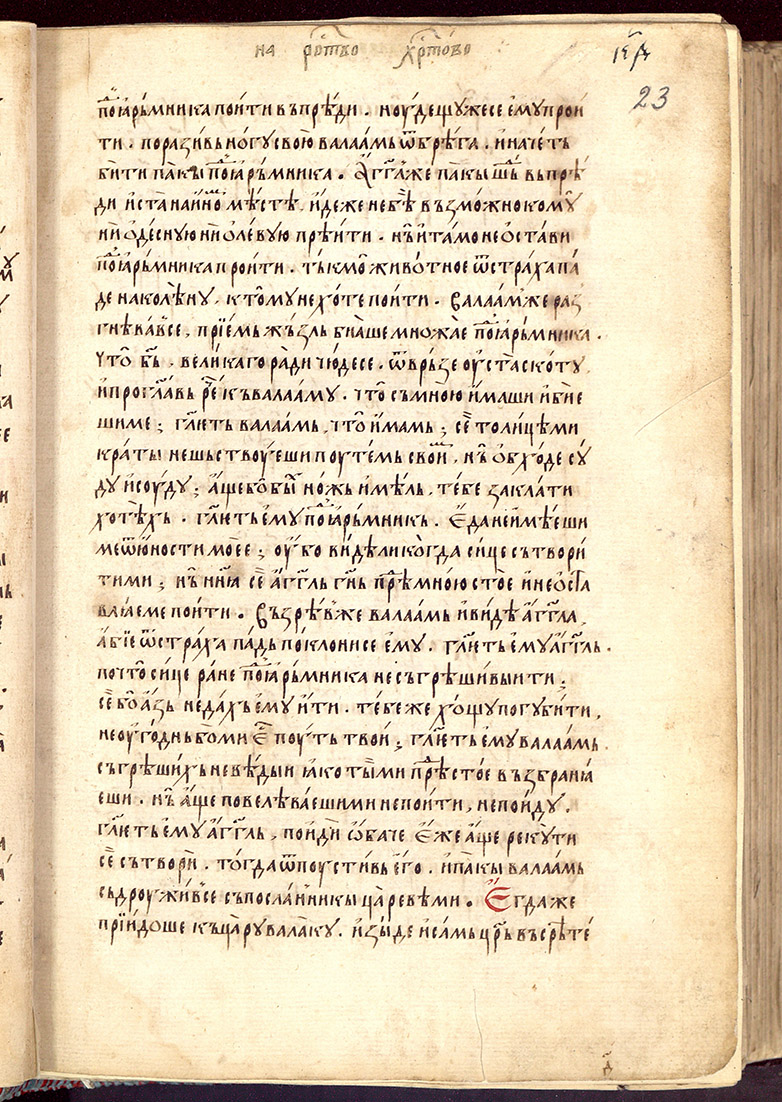 на рⷪ҇тво хрⷭ҇тово
23
поⷣꙗ҆ры́мника пои́ти въпрѣ́ди · ноу́дещꙋжесе є҆мꙋ прои
ти · порази́вь но́гꙋ свою̀ валаа́мь ѿ брѣ́га · и҆ наче́ть
би́ти па́кы поⷣꙗ҆ры́мника · А҆́гг҃лже па́кы шⷣь въпрѣ́
ди и҆ ста на и҆́нѡⷨ мѣ́стѣ, и҆де́же не бѣ̀ възмо́жно комꙋ̀
ни ѡ҆де́снꙋю ни ѡ҆лѣ́вꙋю прѣи́ти · нь̀ и҆ та́мо не ѡ҆ста́ви
поⷣꙗ҆ры́мника прои́ти · тъ́кмо живо́тное ѿ стра́ха па́
де на колѣ́нꙋ, к томꙋ̀ не хо́те пои́ти · Валаа́мⸯже раз
гнѣ́вавⸯсе, прїе́мь жъ́зль бїа́ше мно́жае поⷣꙗ҆ры́мника ·
что̀ бы̀ · вели́каго ра́ди чю́десе · ѿвръ́зе оу҆ста̀ скотꙋ̀,
и҆ прогла́вь рⷱ҇е къ валаа́мꙋ · что̀ съ мно́ю и҆́маши и҆ бїе
ши ме ; гл҃еть валаа́мь, что̀ и҆́мамь ; се̏ толи́цѣми
кра́ты не шьствꙋ́еши поуте́мь свои́мⸯ, нь̀ ѡ҆бхо́де сꙋ́
дꙋ и҆ соу́дꙋ ; а҆́ще бо̀ бы̀ но́жь и҆мѣ́ль, те́бе закла́ти
хотѣ́хь · гл҃еть є҆мꙋ поⷣꙗ҆ры́мникь · Є҆да́ не и҆мѣ́еши
ме ѿ ю҆́ности мое́е ; оу҆́бо ви́дѣ ли когда̀ си́це сътвори́
ти ми ; нь̀ нн҃ꙗ се̏ а҆́гг҃ль гн҃ь прⷣѣ мно́ю стоѐ и҆ не ѡ҆ста
влꙗ́е ме пои́ти · Възрѣ́вⸯже валаа́мь и҆ ви́дѣ а҆́гг҃ла,
а҆́бїе ѿ стра́ха па́дь поклони́се є҆мꙋ · гл҃еть є҆мꙋ а҆́гг҃ль ·
почто̀ си́це ра́не поⷣꙗ҆ры́мника не съгрѣ́шивыи ти ;
се̏ бо̀ а҆́зь не да́хь є҆мꙋ и҆ти · те́бе же хо́щꙋ погꙋби́ти,
не оу҆го́днь бо ми є҆ⷭ҇ поу́ть твои ; гл҃еть є҆мꙋ валаа́мь ·
съгрѣши́хь не вѣ́дыи ꙗ҆ко ты̀ ми прⷣѣ стое́ възбранꙗ́
еши · нь̀ а҆́ще повелѣва́еши ми не пои́ти, не поидꙋ̀.
гл҃еть є҆мꙋ а҆́гг҃ль, пойди̏ ѡ҆ба́че є҆́же а҆́ще рекꙋ̀ ти
се̏ сътвори̏ · тогда̀ ѿпоусти́вь є҆го̀ · и҆ па́кы валаа́мь
съдроужи́вⸯсе съ посла́нники ца́ревѣми · Є҆гда́ же
прїидо́ше къ ца́рꙋ вала́кꙋ · и҆зы́де и҆ са́мь цр҃ь въ срѣ́те́